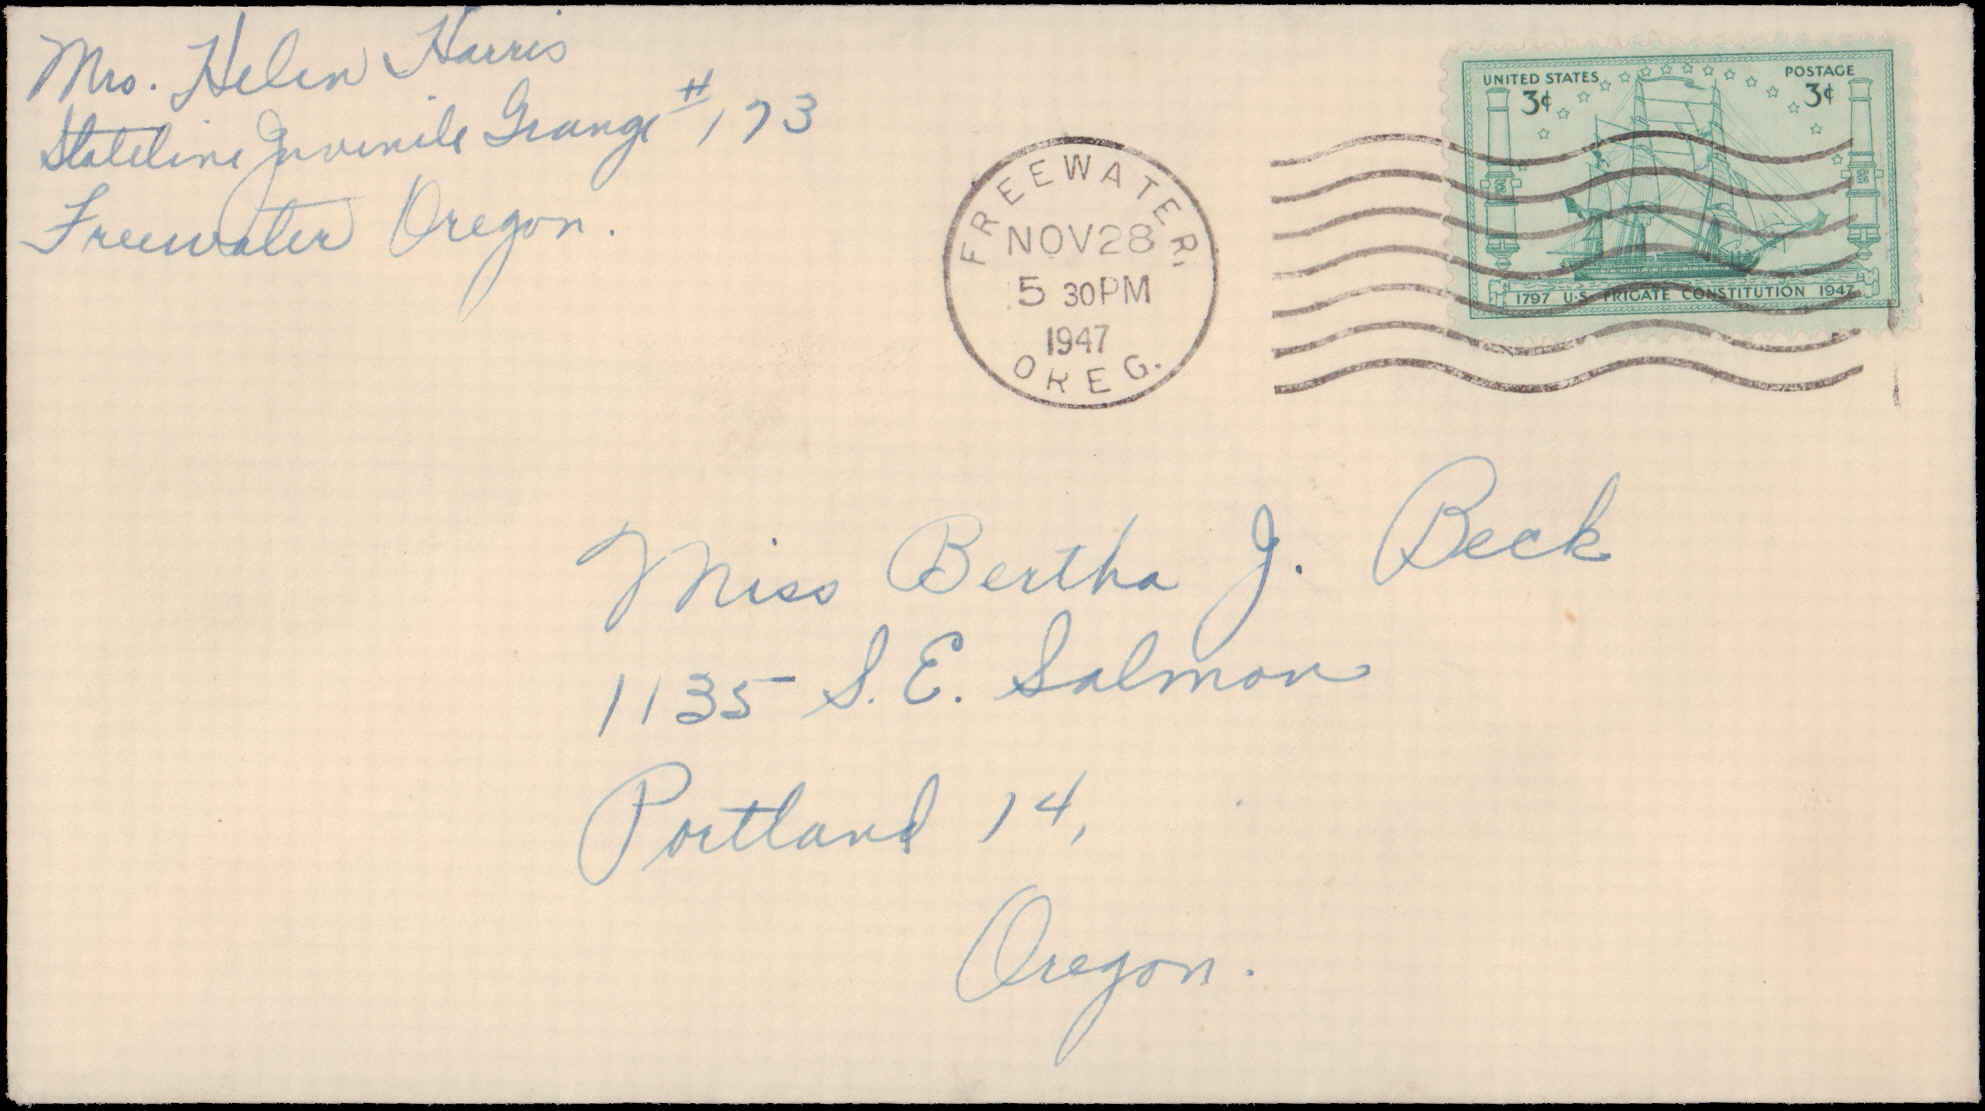 Mrs. Helen Harris
Stateline Juvenile Grange #173
Freewater Oregon.
FREEWATER,
NOV 28
5 30PM
1947
OREG.
UNITED STATES POSTAGE
3¢ 3¢
1797 U.S. FRIGATE CONSTITUTION 1947
Miss Bertha J. Beck
1135 S.E. Salmon
Portland 14,
Oregon.